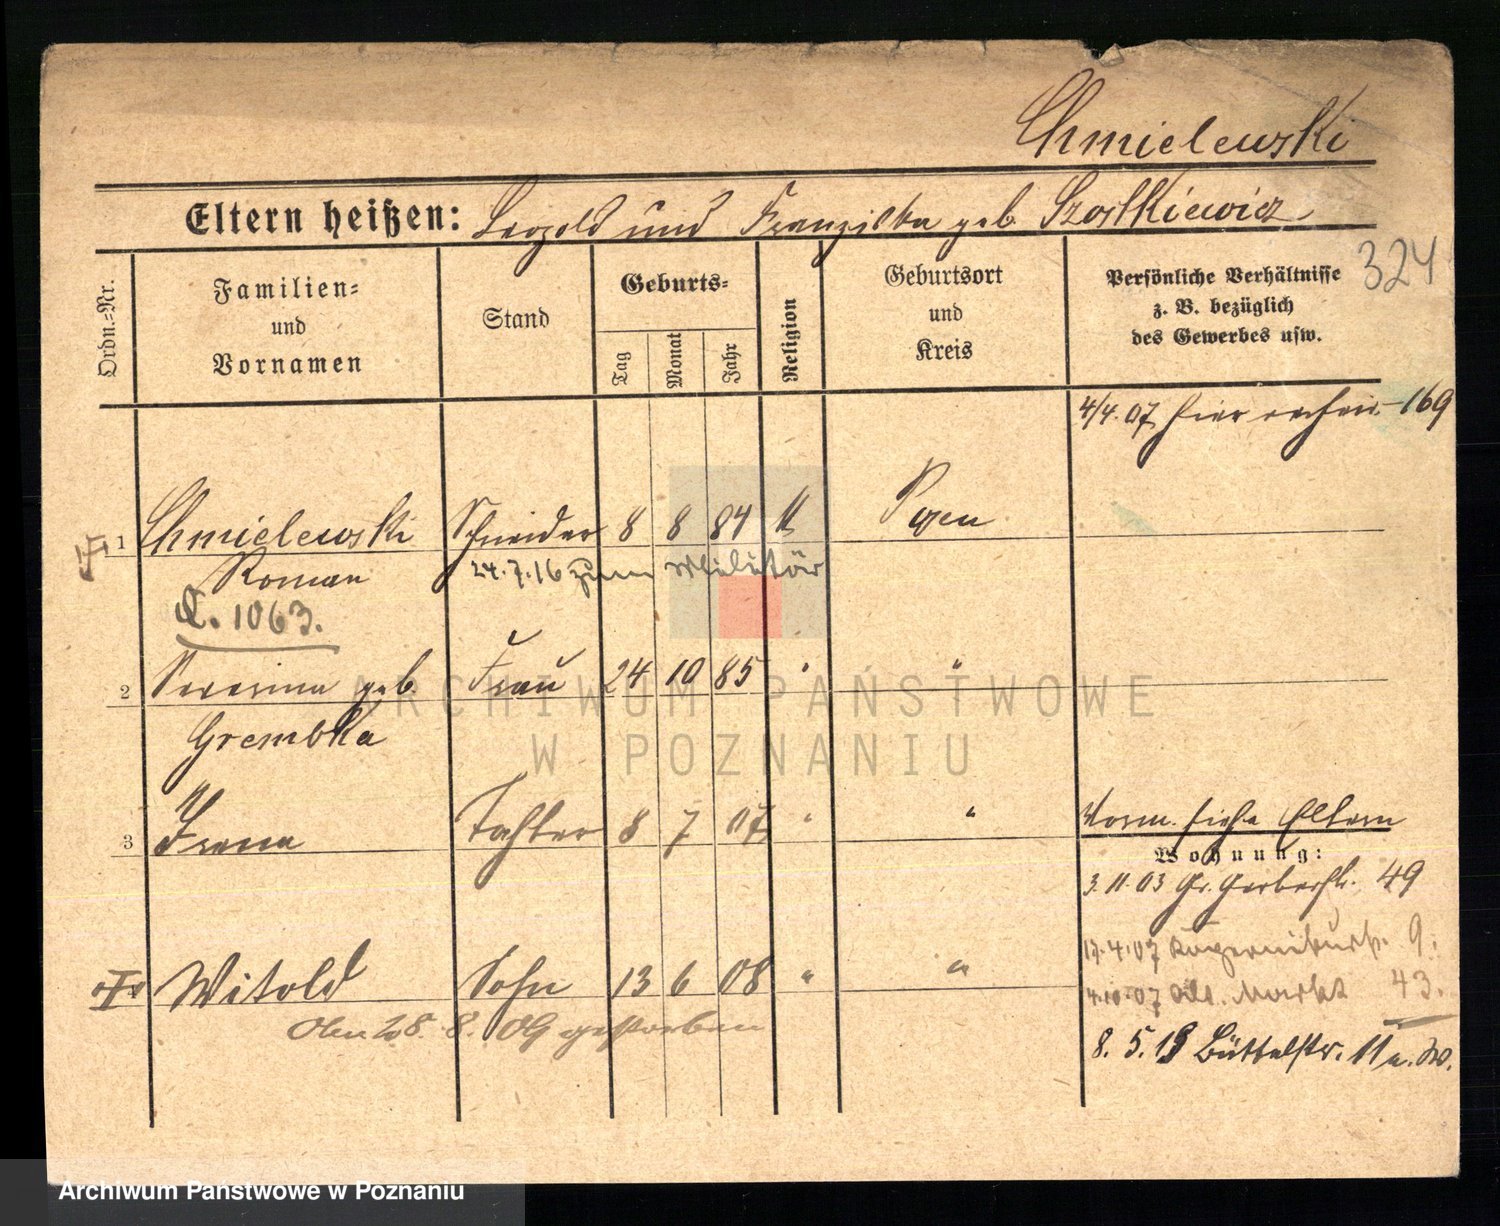 Chmielewski
Eltern heißen: Leopold und Franziska geb. Szostkiewicz
324
Ordn.-Nr.
Familien-
und
Vornamen
Stand
Geburts-
Tag
Monat
Jahr
Religion
Geburtsort
und
Kreis
Persönliche Verhältnisse
z. B. bezüglich
des Gewerbes usw.
4/4. 07 hier 169
1 Chmielewski Schneider 8 8 84 K Posen
Roman 24.7.16 zum Militär
Q. 1063.
2 Severina geb. Frau 24 10 85 " "
Grembka
3 Irena Tochter 8 7 07 " "
Vorm. siehe Eltern
Wohnung:
3.11.03 Gr. Gerberstr. 49
17.4.07 9.
Witold Sohn 13 6 08 " "
4.10.07 Alt. Markt 43.
28. 8. 09 gestorben
8. 5. 13 Büttelstr. 11a.
ARCHIWUM PAŃSTWOWE
W POZNANIU
Archiwum Państwowe w Poznaniu